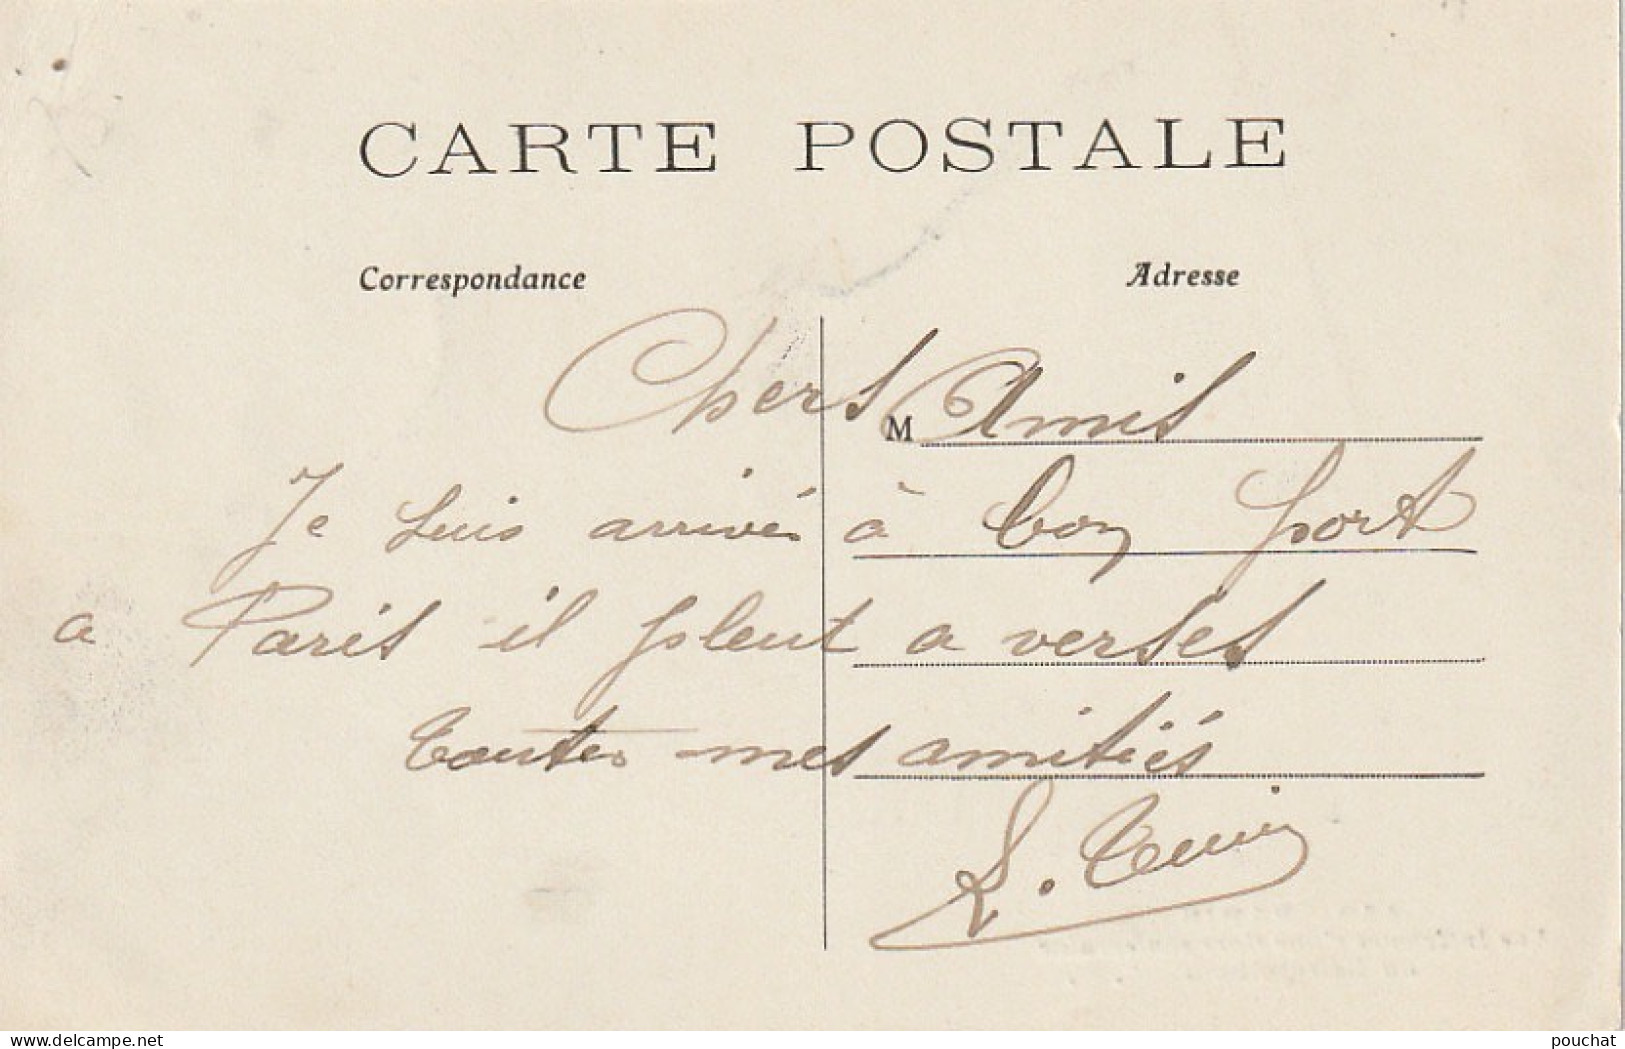 CARTE POSTALE
Correspondance
Adresse
Chers M Amis
Je suis arrivé à bon port
a Paris il pleut a verses
toutes mes amitiés
L.
www.delcampe.net
pouchat